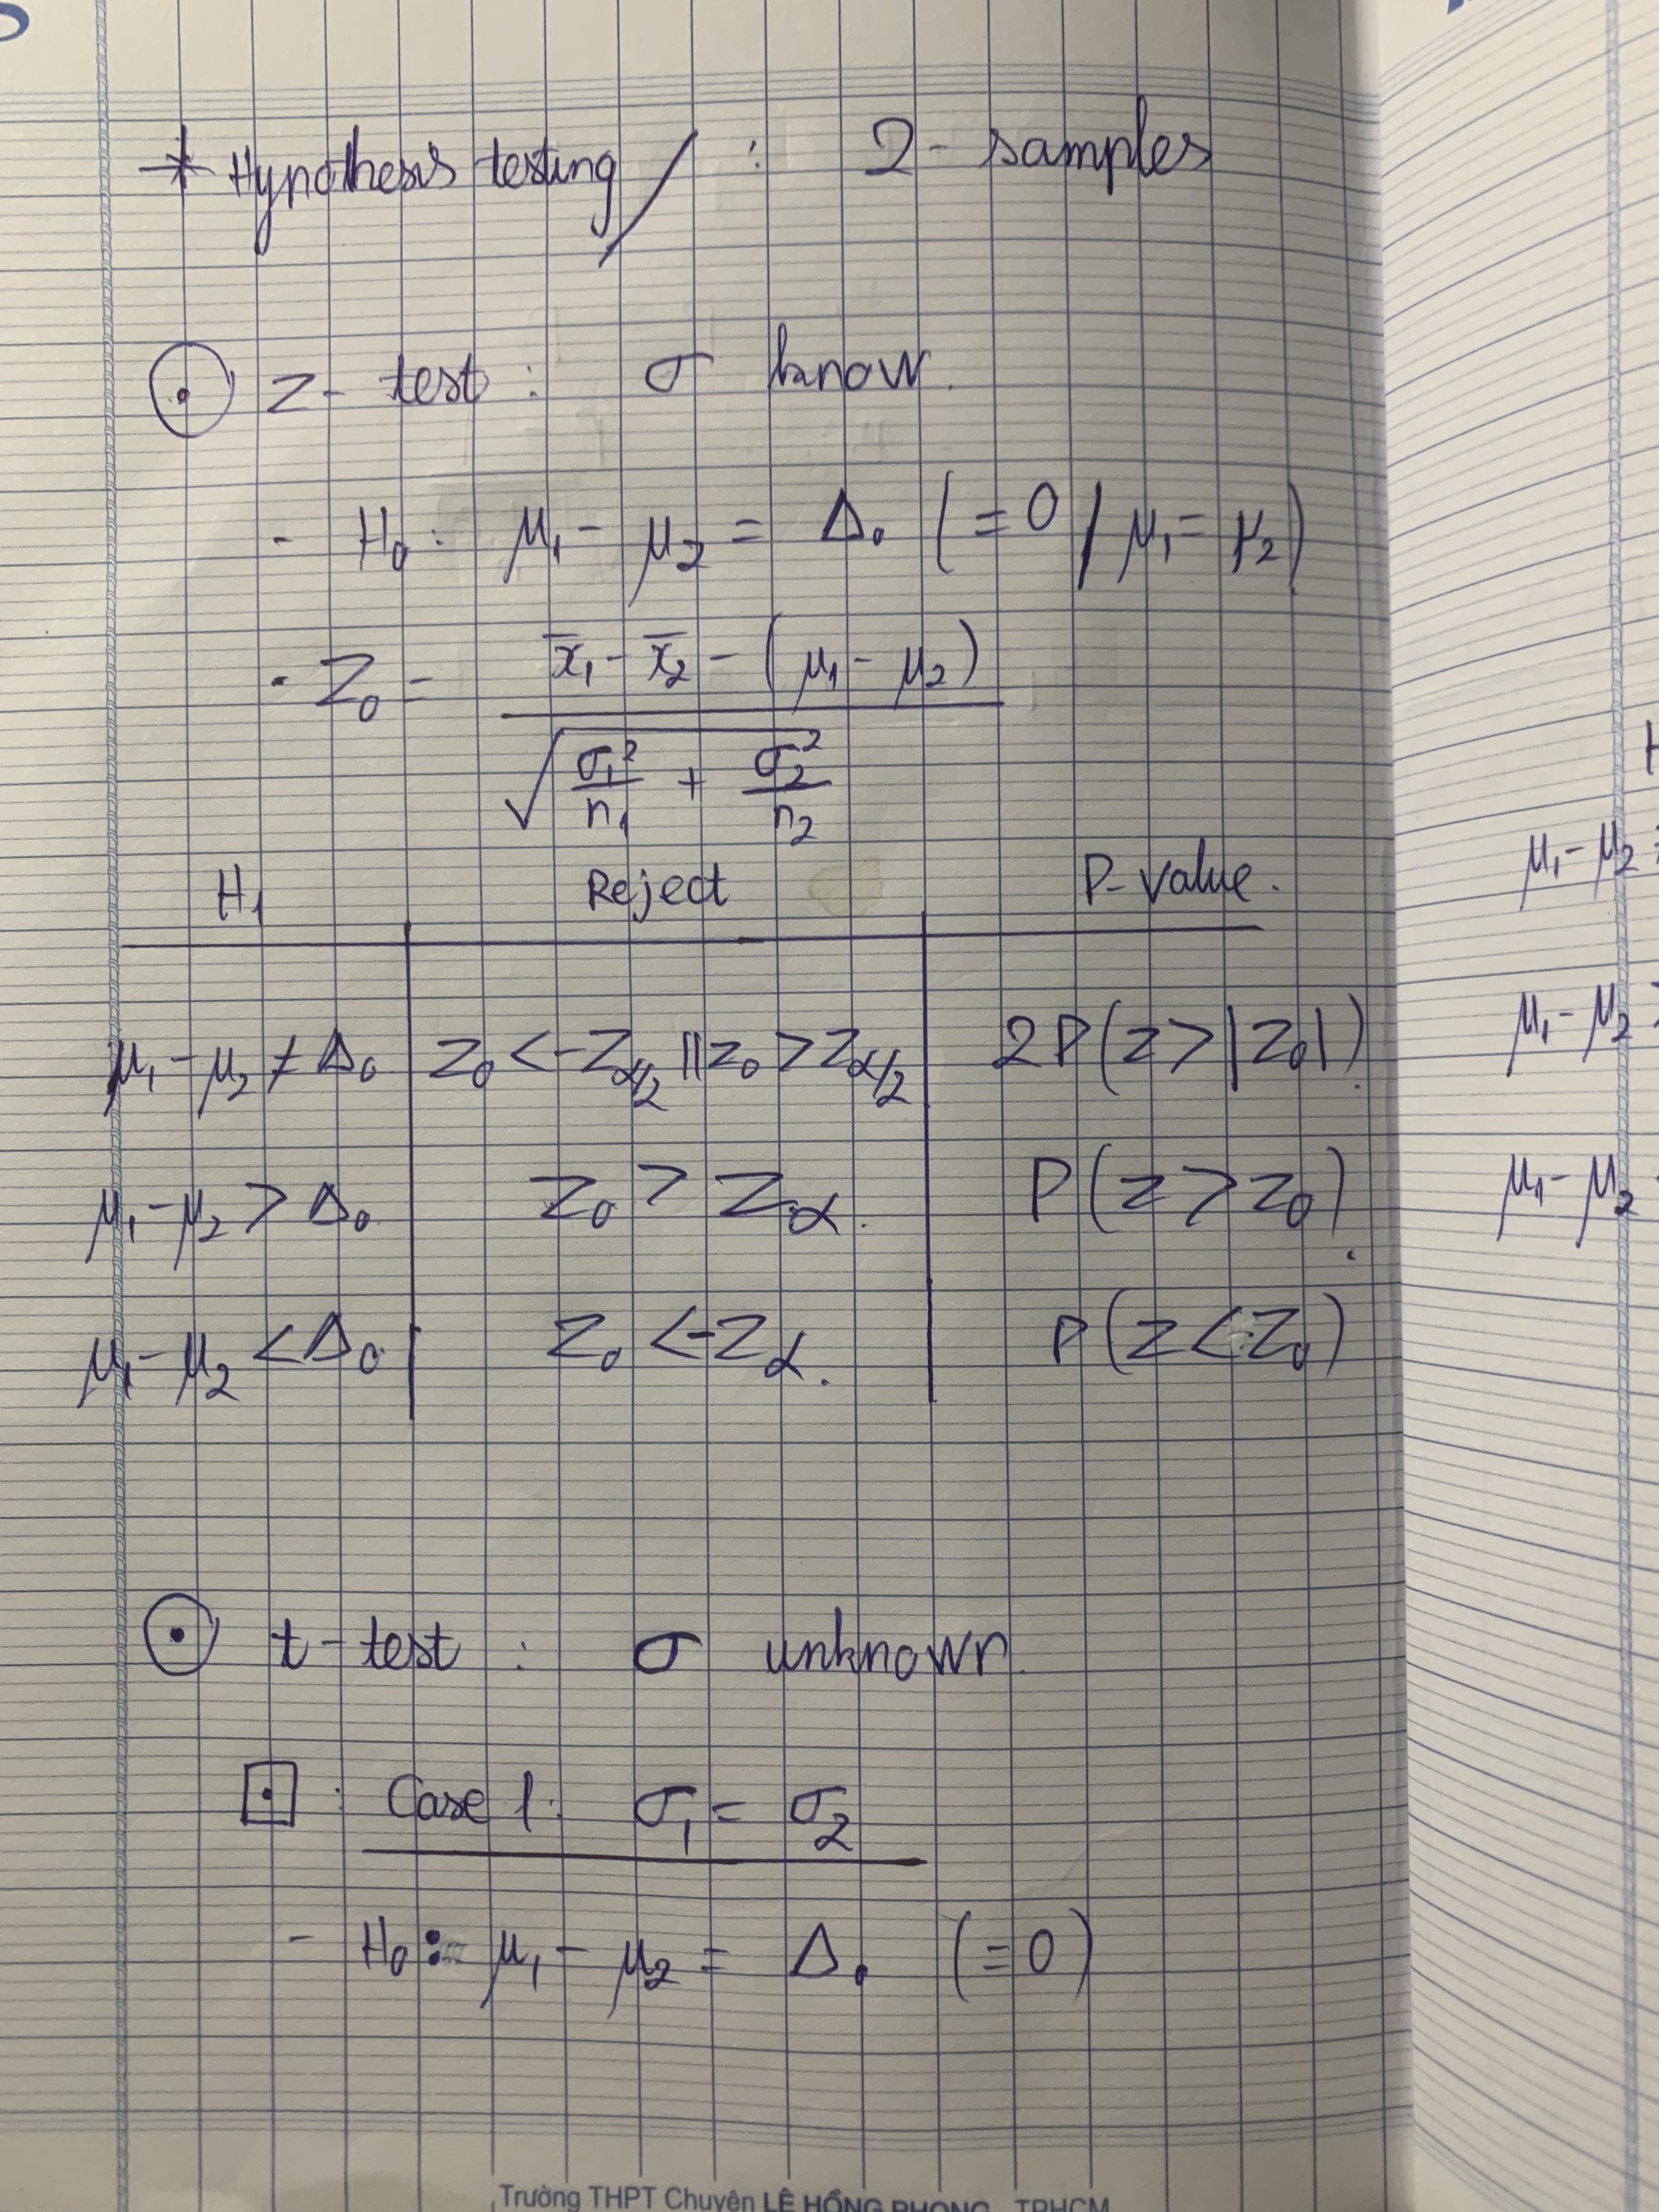 * Hypothesis testing / : 2-samples
⊙ Z-test : σ know.
- H₀ : μ₁ - μ₂ = Δ₀ (= 0 / μ₁ = μ₂)
- Z₀ = (x̄₁ - x̄₂ - (μ₁ - μ₂)) / √(σ₁²/n₁ + σ₂²/n₂)
H₁ | Reject | P-value.
μ₁ - μ₂ ≠ Δ₀ | Z₀ < -Z_α/2 || Z₀ > Z_α/2 | 2P(Z > |Z₀|)
μ₁ - μ₂ > Δ₀ | Z₀ > Z_α. | P(Z > Z₀).
μ₁ - μ₂ < Δ₀ | Z₀ < -Z_α. | P(Z < Z₀)
⊙ t-test : σ unknown.
⊡ : Case 1: σ₁ = σ₂
- H₀ : μ₁ - μ₂ = Δ₀ (= 0)
Trường THPT Chuyên LÊ HỒNG PHONG - TPHCM
μ₁ - μ₂
μ₁ - μ₂
μ₁ - μ₂